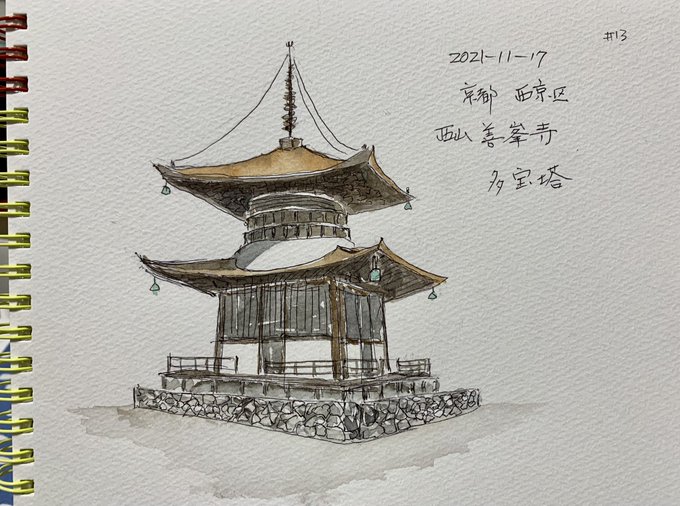 #13
2021-11-17
京都 西京区
西山 善峯寺
多宝塔